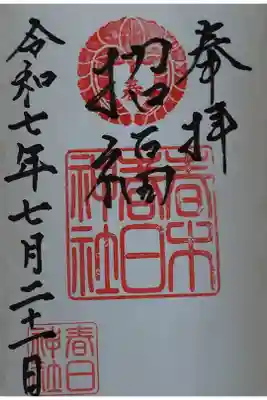 奉拝
招福
令和七年七月二十一日
神社
春日
神社